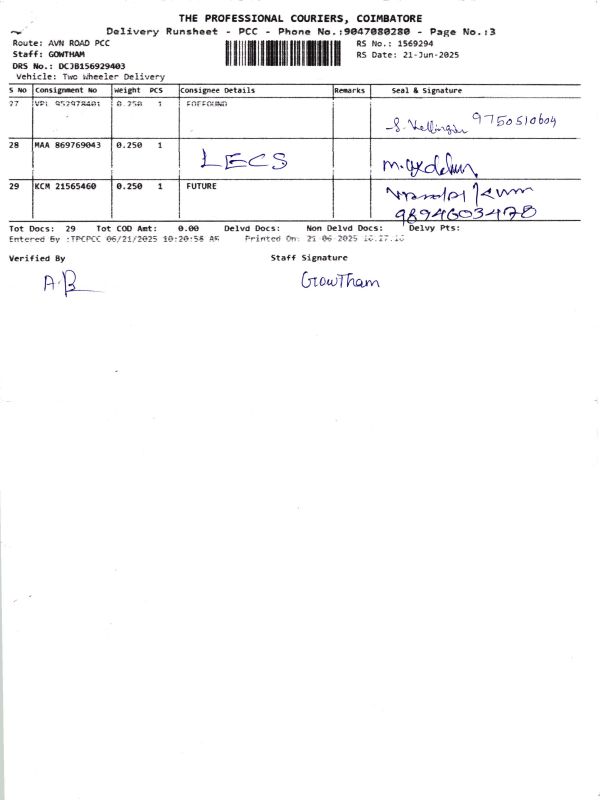 THE PROFESSIONAL COURIERS, COIMBATORE
Delivery Runsheet - PCC - Phone No.:9047080280 - Page No.:3
Route: AVN ROAD PCC
Staff: GOWTHAM
DRS No.: DCJB156929403
Vehicle: Two Wheeler Delivery
RS No.: 1569294
RS Date: 21-Jun-2025
S No Consignment No Weight PCS Consignee Details Remarks Seal & Signature
27 VPI 952978401 0.250 1 9750510604
28 MAA 869769043 0.250 1 LECS
29 KCM 21565460 0.250 1 FUTURE
9894603478
Tot Docs: 29 Tot COD Amt: 0.00 Delvd Docs: Non Delvd Docs: Delvy Pts:
Entered By :TPCPCC 06/21/2025 10:20:56 AM Printed On: 21-06-2025
Verified By Staff Signature
A.B GowTham